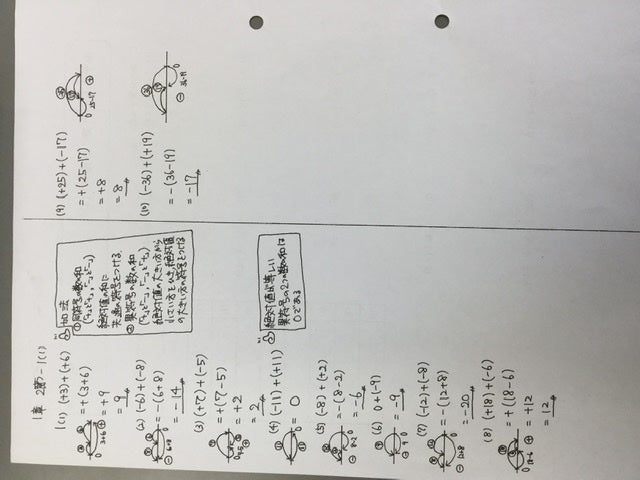 1章 2節-1(1)
1(1) (+3)+(+6)
=+(3+6)
=+9
=9
3+6
(2) (-6)+(-8)
=-(6+8)
=-14
6+8
(3) (+7)+(-5)
=+(7-5)
=+2
=2
(4) (-11)+(+11)
=0
(5) (-8)+(+2)
=-(8-2)
=-6
8-2
(6) 0+(-9)
=-9
(7) (-12)+(-8)
=-(12+8)
=-20
12+8
(8) (+18)+(-6)
=+(18-6)
=+12
=12
18-6
加法
①同符号の数の和
絶対値の和に
共通の符号をつける
②異符号の数の和
絶対値の大きい方から
小さい方をひき、絶対値
の大きい方の符号をつける
絶対値が等しい
異符号の2つの数の和は
0である
(9) (+25)+(-17)
=+(25-17)
=+8
=8
25-17
(10) (-36)+(+19)
=-(36-19)
=-17
36-19